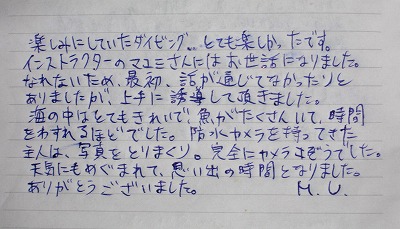 楽しみにしていたダイビング、とても楽しかったです。
インストラクターのマユミさんにはお世話になりました。
なれないため、最初、話が通じてなかったりと
ありましたが、上手に誘導して頂きました。
海の中はとてもきれいで、魚がたくさんいて、時間
をわすれるほどでした。防水カメラを持ってきた
主人は、写真をとりまくり。完全にカメラこぞうでした。
天気にもめぐまれて、思い出の時間となりました。
ありがとうございました。 M.U.